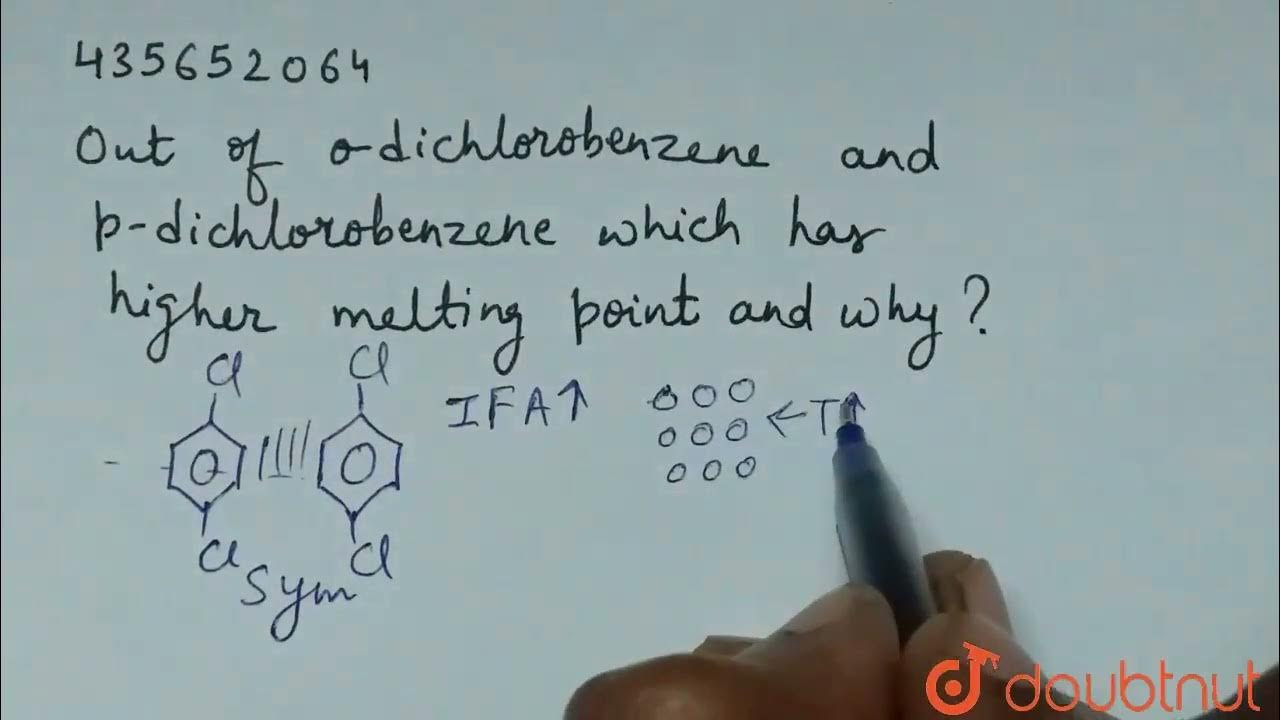 435652064
Out of o-dichlorobenzene and
p-dichlorobenzene which has
higher melting point and why?
Cl Cl
IFA↑ ←T↑
Cl Cl
Sym
doubtnut